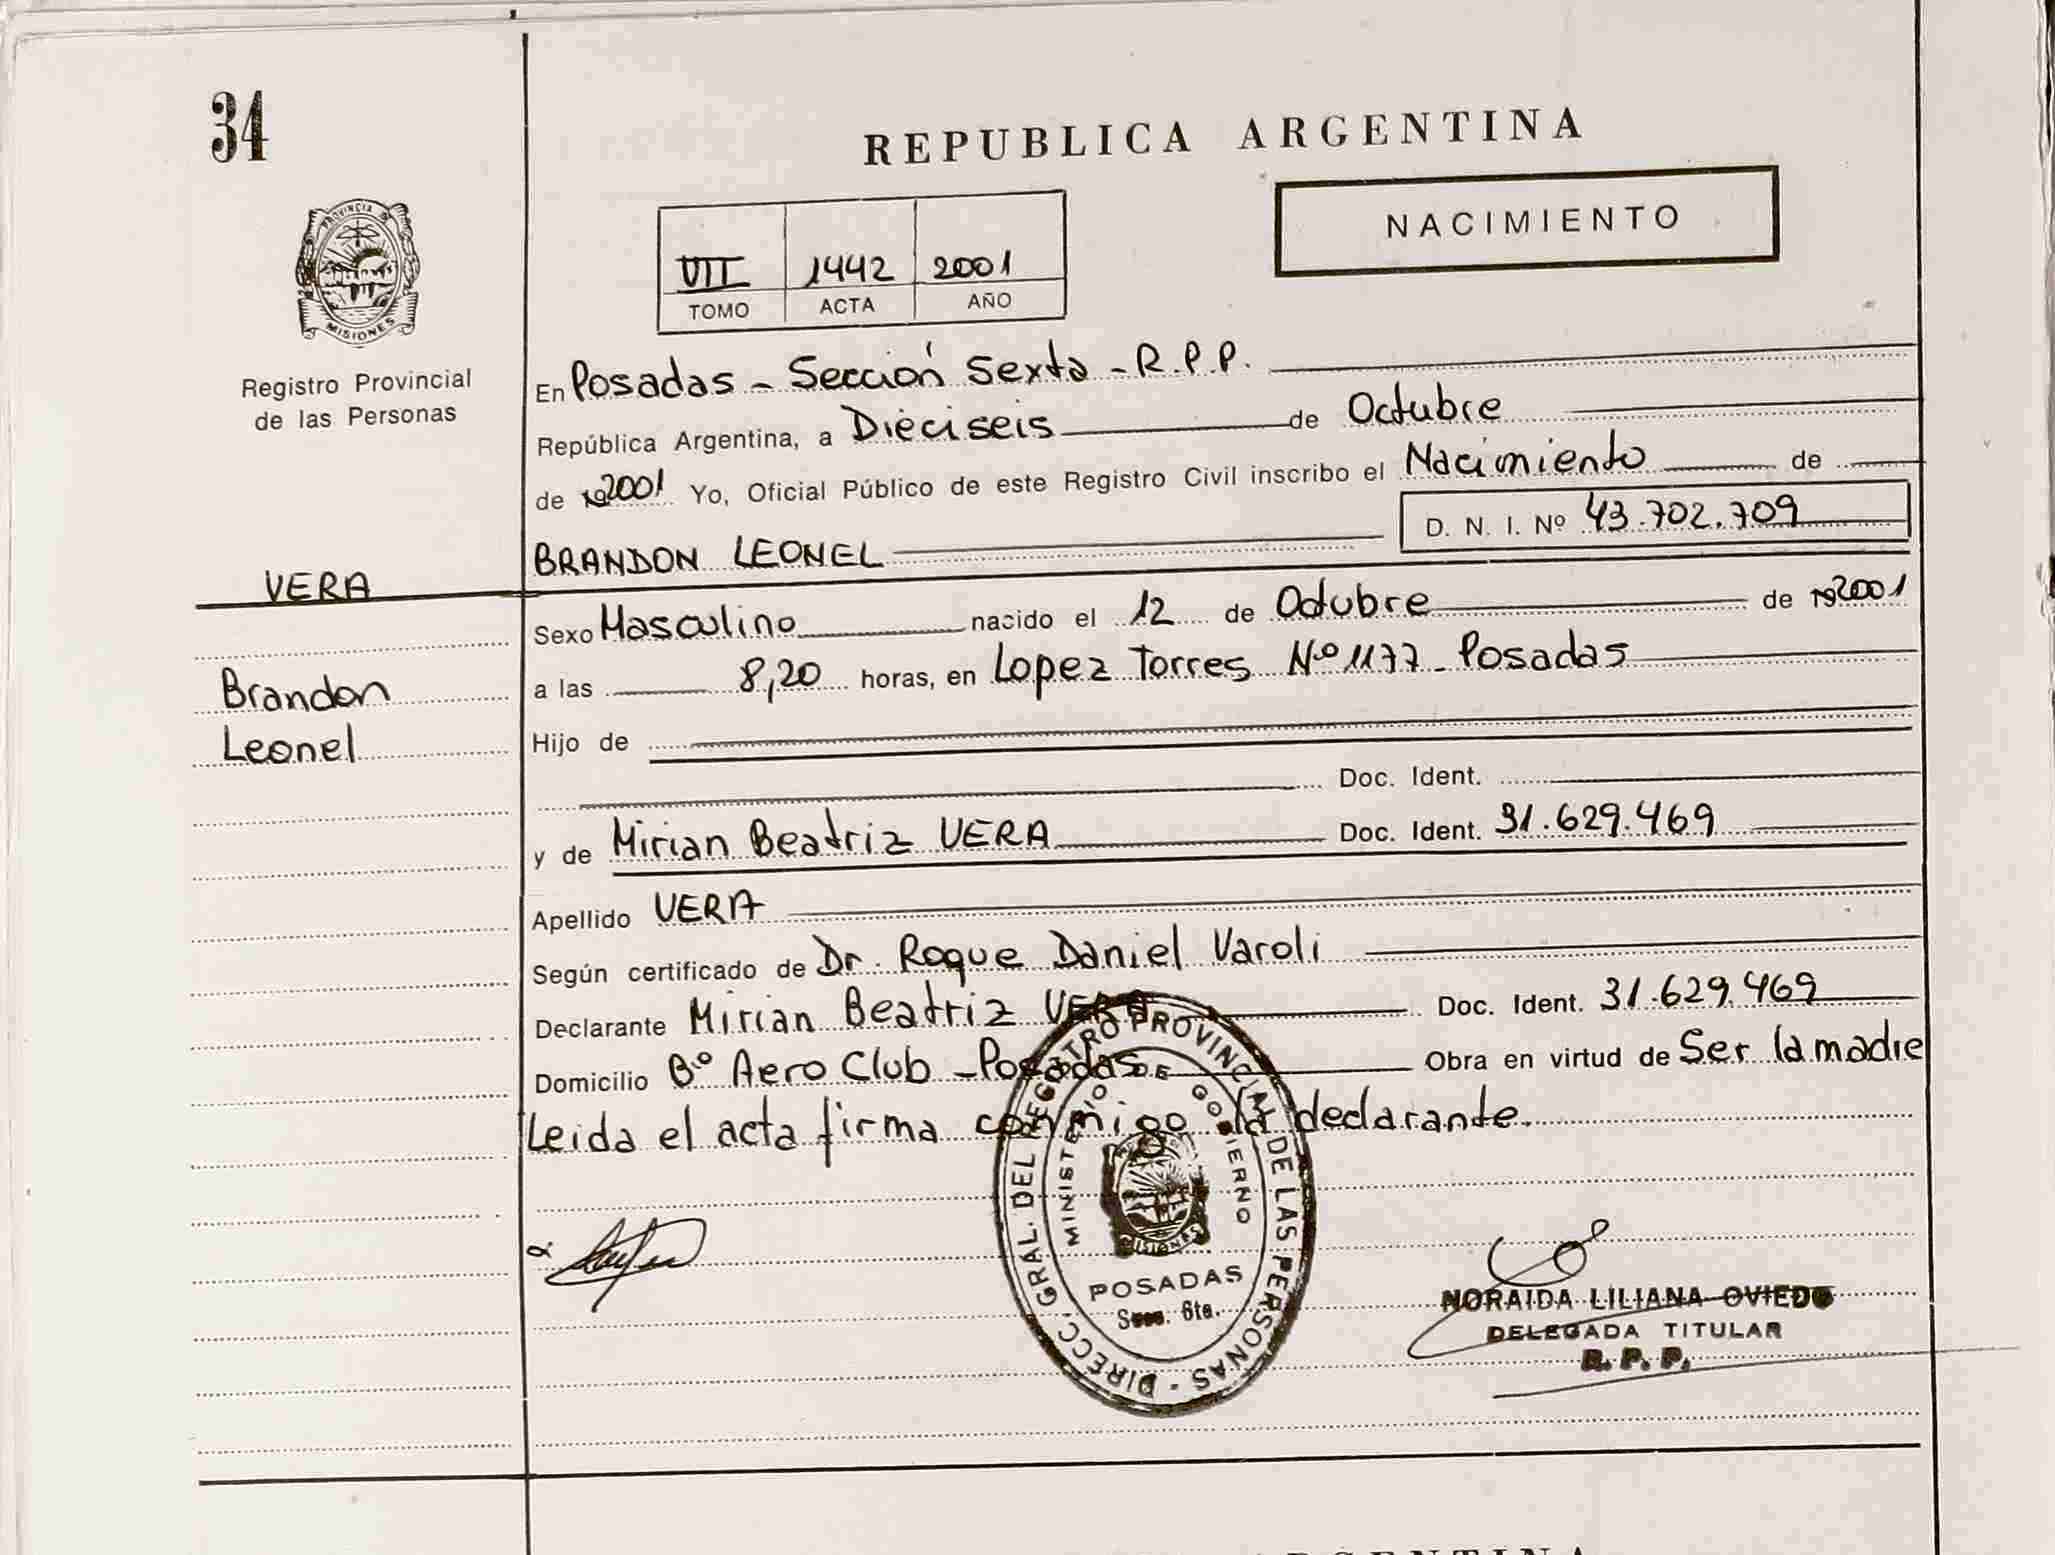 34
REPUBLICA ARGENTINA
NACIMIENTO
VII 1442 2001
TOMO ACTA AÑO
PROVINCIA DE
MISIONES
Registro Provincial
de las Personas
En Posadas - Sección Sexta - R.P.P.
República Argentina, a Dieciseis de Octubre
de 192001 Yo, Oficial Público de este Registro Civil inscribo el Nacimiento de
D. N. I. Nº 43.702.709
BRANDON LEONEL
VERA
Brandon
Leonel
Sexo Masculino nacido el 12 de Octubre de 192001
a las 8,20 horas, en Lopez Torres Nº 1177 - Posadas
Hijo de
Doc. Ident.
y de Mirian Beatriz VERA Doc. Ident. 31.629.469
Apellido VERA
Según certificado de Dr. Roque Daniel Varoli
Declarante Mirian Beatriz VERA Doc. Ident. 31.629.469
Domicilio Bº Aero Club - Posadas Obra en virtud de Ser la madre
Leida el acta firma conmigo la declarante.
DIRECC. GRAL. DEL REGISTRO PROVINCIAL DE LAS PERSONAS -
MINISTERIO DE GOBIERNO
MISIONES
POSADAS
Secc. 6ta.
NORAIDA LILIANA OVIEDO
DELEGADA TITULAR
R. P. P.